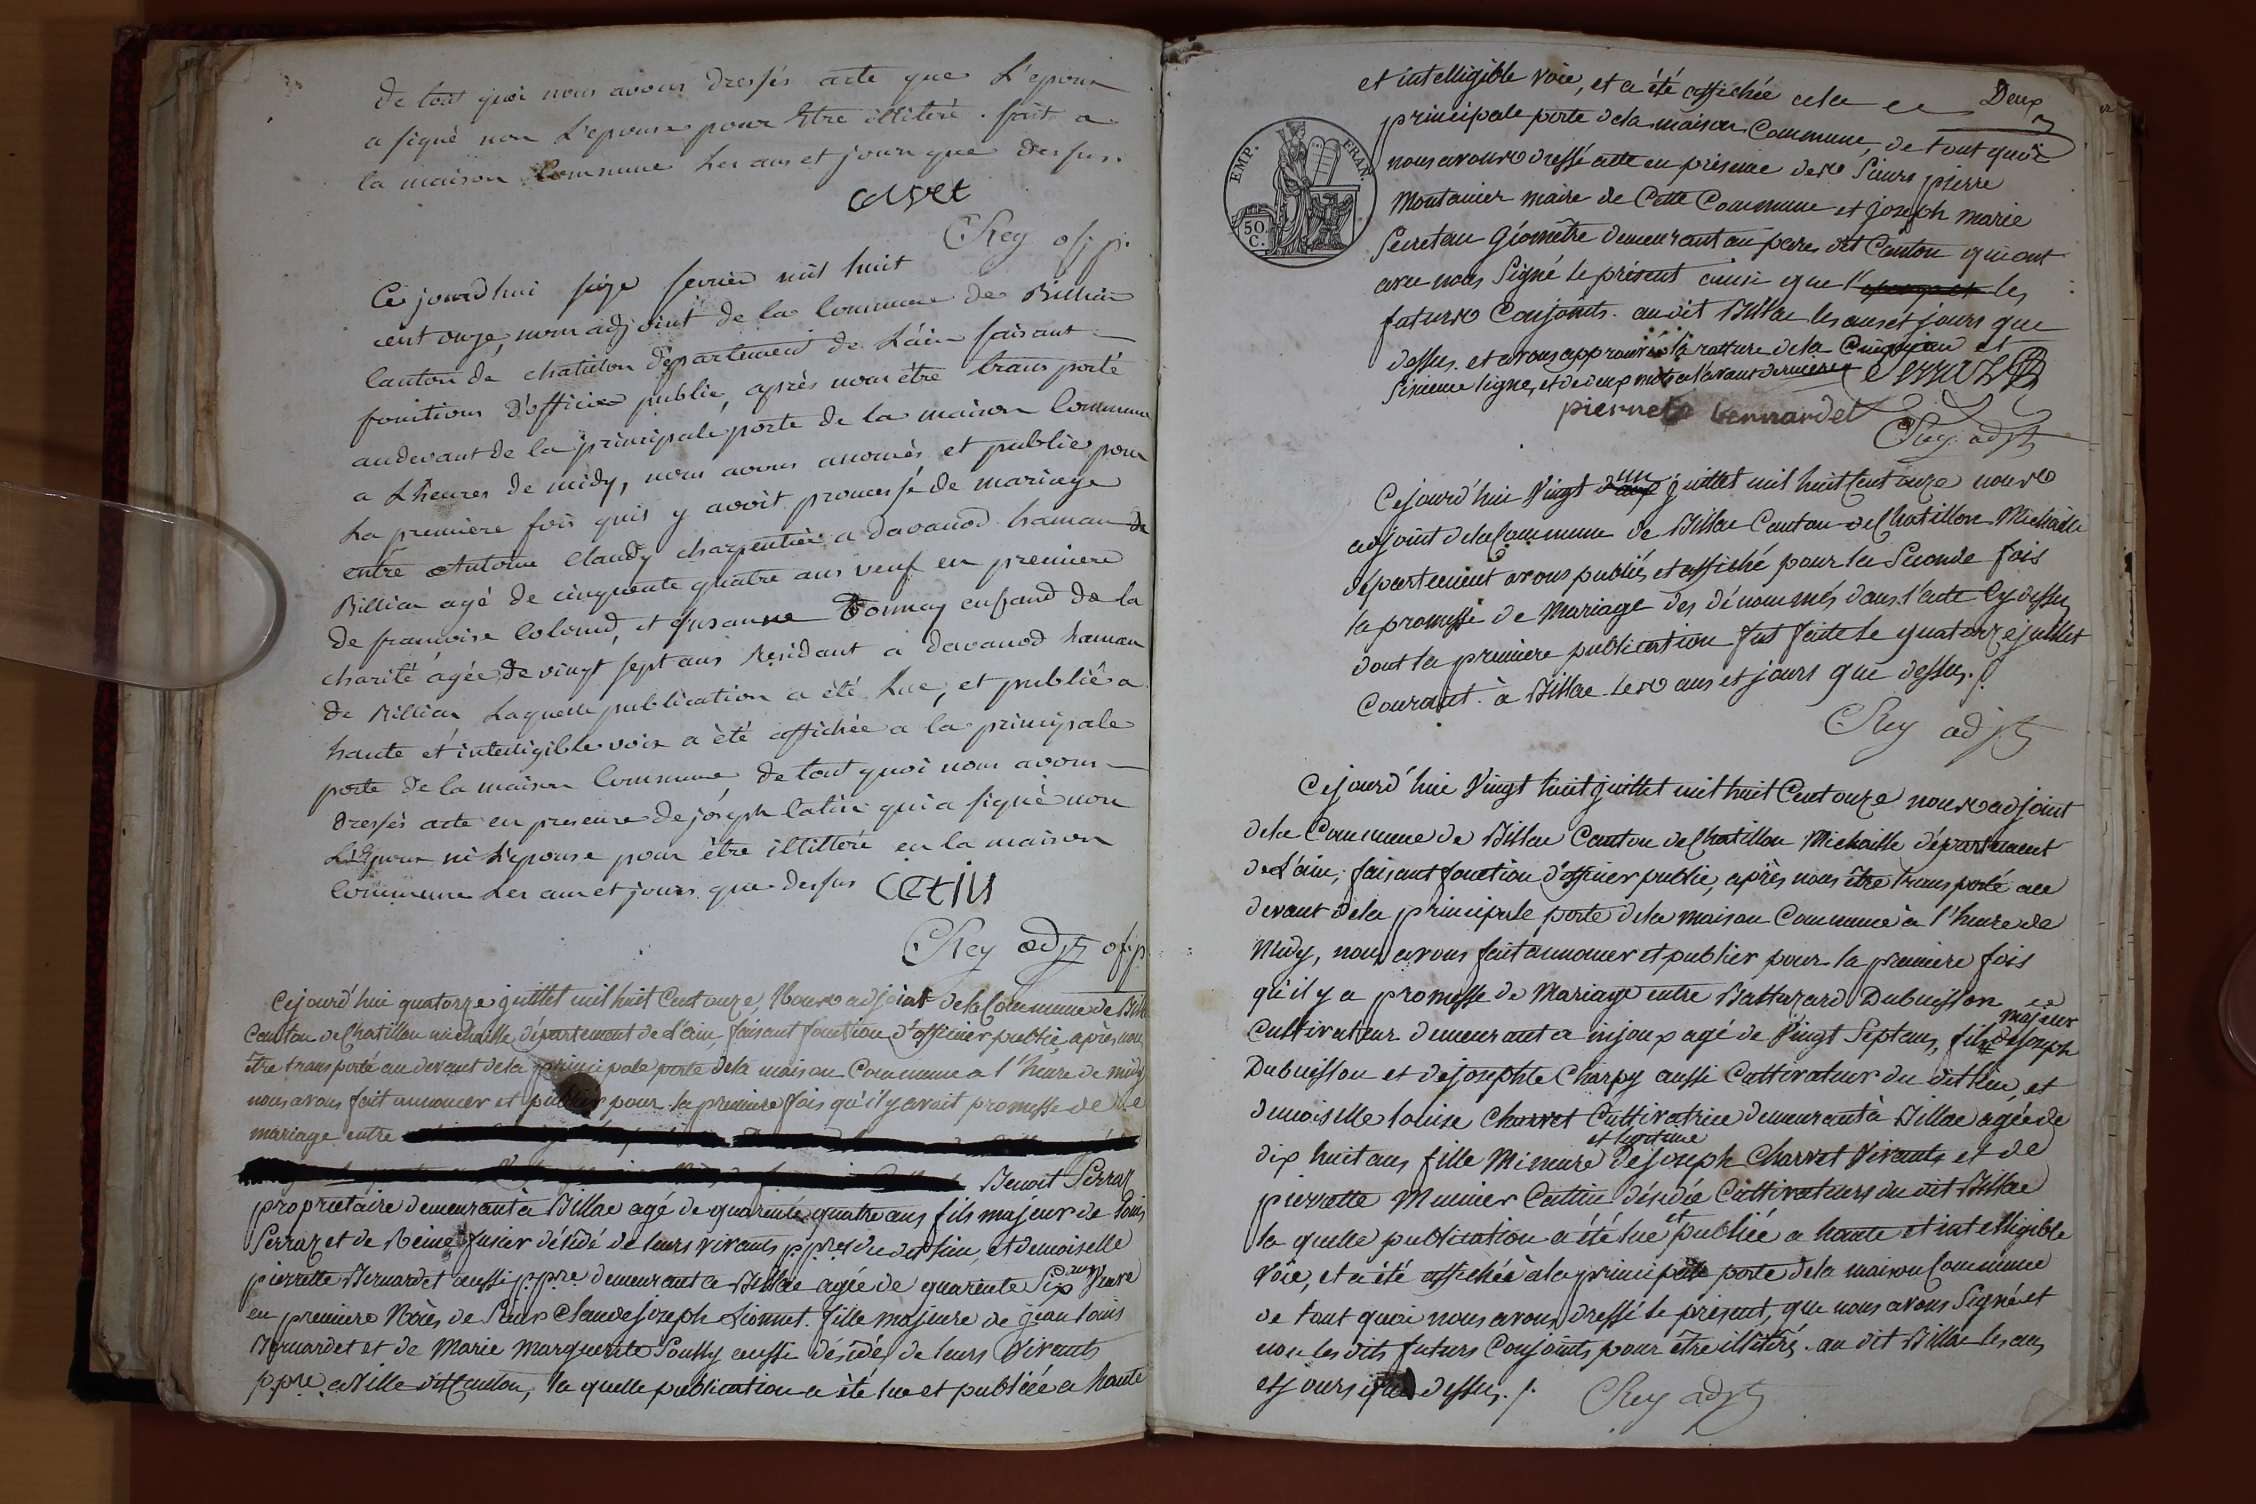 de tout quoi nous avons dressés acte que L'epoux
a signé non L'epouse pour Etre illiteré. fait a
la maison Commune Les ans et jours que dessus.
Rey off p.
Ce jourdhui seize fevrier mil huit
cent onze, nous adjoint de la Commune de Billiat
Canton de chatillon departement de L'ain faisant
fonitions d'officier public, après nous être transporté
audevant de la principale porte de la maison Commune
a L'heures de midy, nous avons anoncés et publié pour
La première fois quis y avoit promesse de mariage
entre Antoine Claudy charpentier a davanod hamau de
Billiat agé de cinquente quatre ans veuf en premiere
de francoise Colomb, et Susanne Tonnay enfand de la
charité agée de vingt sept ans Residant a davanod hamau
de Billiat Laquelle publication a été Lue, et publié a
haute et inteligible voix a été affichée a la principale
porte de la maison Commune, de tout quoi nous avons
dressés acte en presence de joseph Catin qui a signé non
L'Epoux ni L'epouse pour être illittéré en la maison
Commune Les ans et jours que dessus CATIN
Rey adjt of.p.
Cejourd'hui quatorze juillet mil huit Cent onze, Nous adjoint dela Commune de Bill
Canton de Chatillon michaille département de L'ain, faisant fonction d'officier public, après nous
être transporté au devant dela principale porte dela maison Commune a l'heure de midy
nous avons fait annoncer et publier pour la premiere fois qu'il y avait promesse de
mariage entre
Benoit Serraz
propriétaire demeurant à Billac agé de quarente quatre ans fils majeur de Louis
Serraz et de Reine fusier désédé de leurs vivants ppres du dit lieu, et demoiselle
pierrette Bernardet aussi ppre demeurant a Billac agée de quarente Six ans Veuve
en premiere Noces de Sieur Claude joseph Lionnet. fille majeure de jean Louis
Bernardet et de Marie Marguerite Soussy aussi désédés de leurs Vivants
ppre a Ville dit Canton, la quelle publication a été lue et publiée a haute
Deux
et intelligible voie, et a été affichée a la
principale porte dela maison Commune, de tout quoi
nous avons dressé acte en présence des Sieurs pierre
Montanier maire de Cette Commune et joseph marie
Secretan Géomêtre demeurant au parc dit Canton qui ont
avec nous Signé le présent ainsi que les
futurs Conjoints. au dit Billac les ans et jours que
dessus. et avons approuvé la rature dela Cinquieme et
Sixieme ligne, et de deux mots a l'avant derniere
SERRAZ
pierrete bernardet
Rey. adjt
EMP. FRAN.
50 C.
Cejourd'hui Vingt un juillet mil huit Cent onze nous
adjoint dela Commune de Billac Canton de Chatillon Michaille
département avons publié, et affiché pour la Seconde fois
la promesse de Mariage des dénommés dans l'acte Cy dessus
dont la premiere publication fut faite le quatorze juillet
Courant. à Billac les ans et jours que dessus.
Rey adjt
Cejourd'hui Vingt huit juillet mil huit Cent onze nous adjoint
dela Commune de Billac Canton de Chatillon Michaille département
de L'ain, faisant fonction d'officier public, après nous être transporté au
devant dela principale porte dela maison Commune à l'heure de
Midy, nous avons fait annoncer et publier pour la premiere fois
qu'il y a promesse de Mariage entre Baltazard Dubuisson
Cultivateur demeurant a injoux agé de Vingt Sept ans, fils majeur de joseph
Dubuisson et de josephte Charpy aussi Cultivateur du dit lieu, et
demoiselle Louise Charvet Cultivatrice demeurant à Billac agée de
dix huit ans fille Mineure de joseph Charvet Vivants et de
pierrette Munier Cattin désédée Cultivateurs du dit Billac
la quelle publication a été lue et publiée a haute et intelligible
Voie, et a été affichée à la principale porte dela maison Commune
de tout quoi nous avons dressé le présent, que nous avons Signé et
non les dits futurs Conjoints pour être illiterés. au dit Billac les ans
et jours que dessus.
Rey adjt